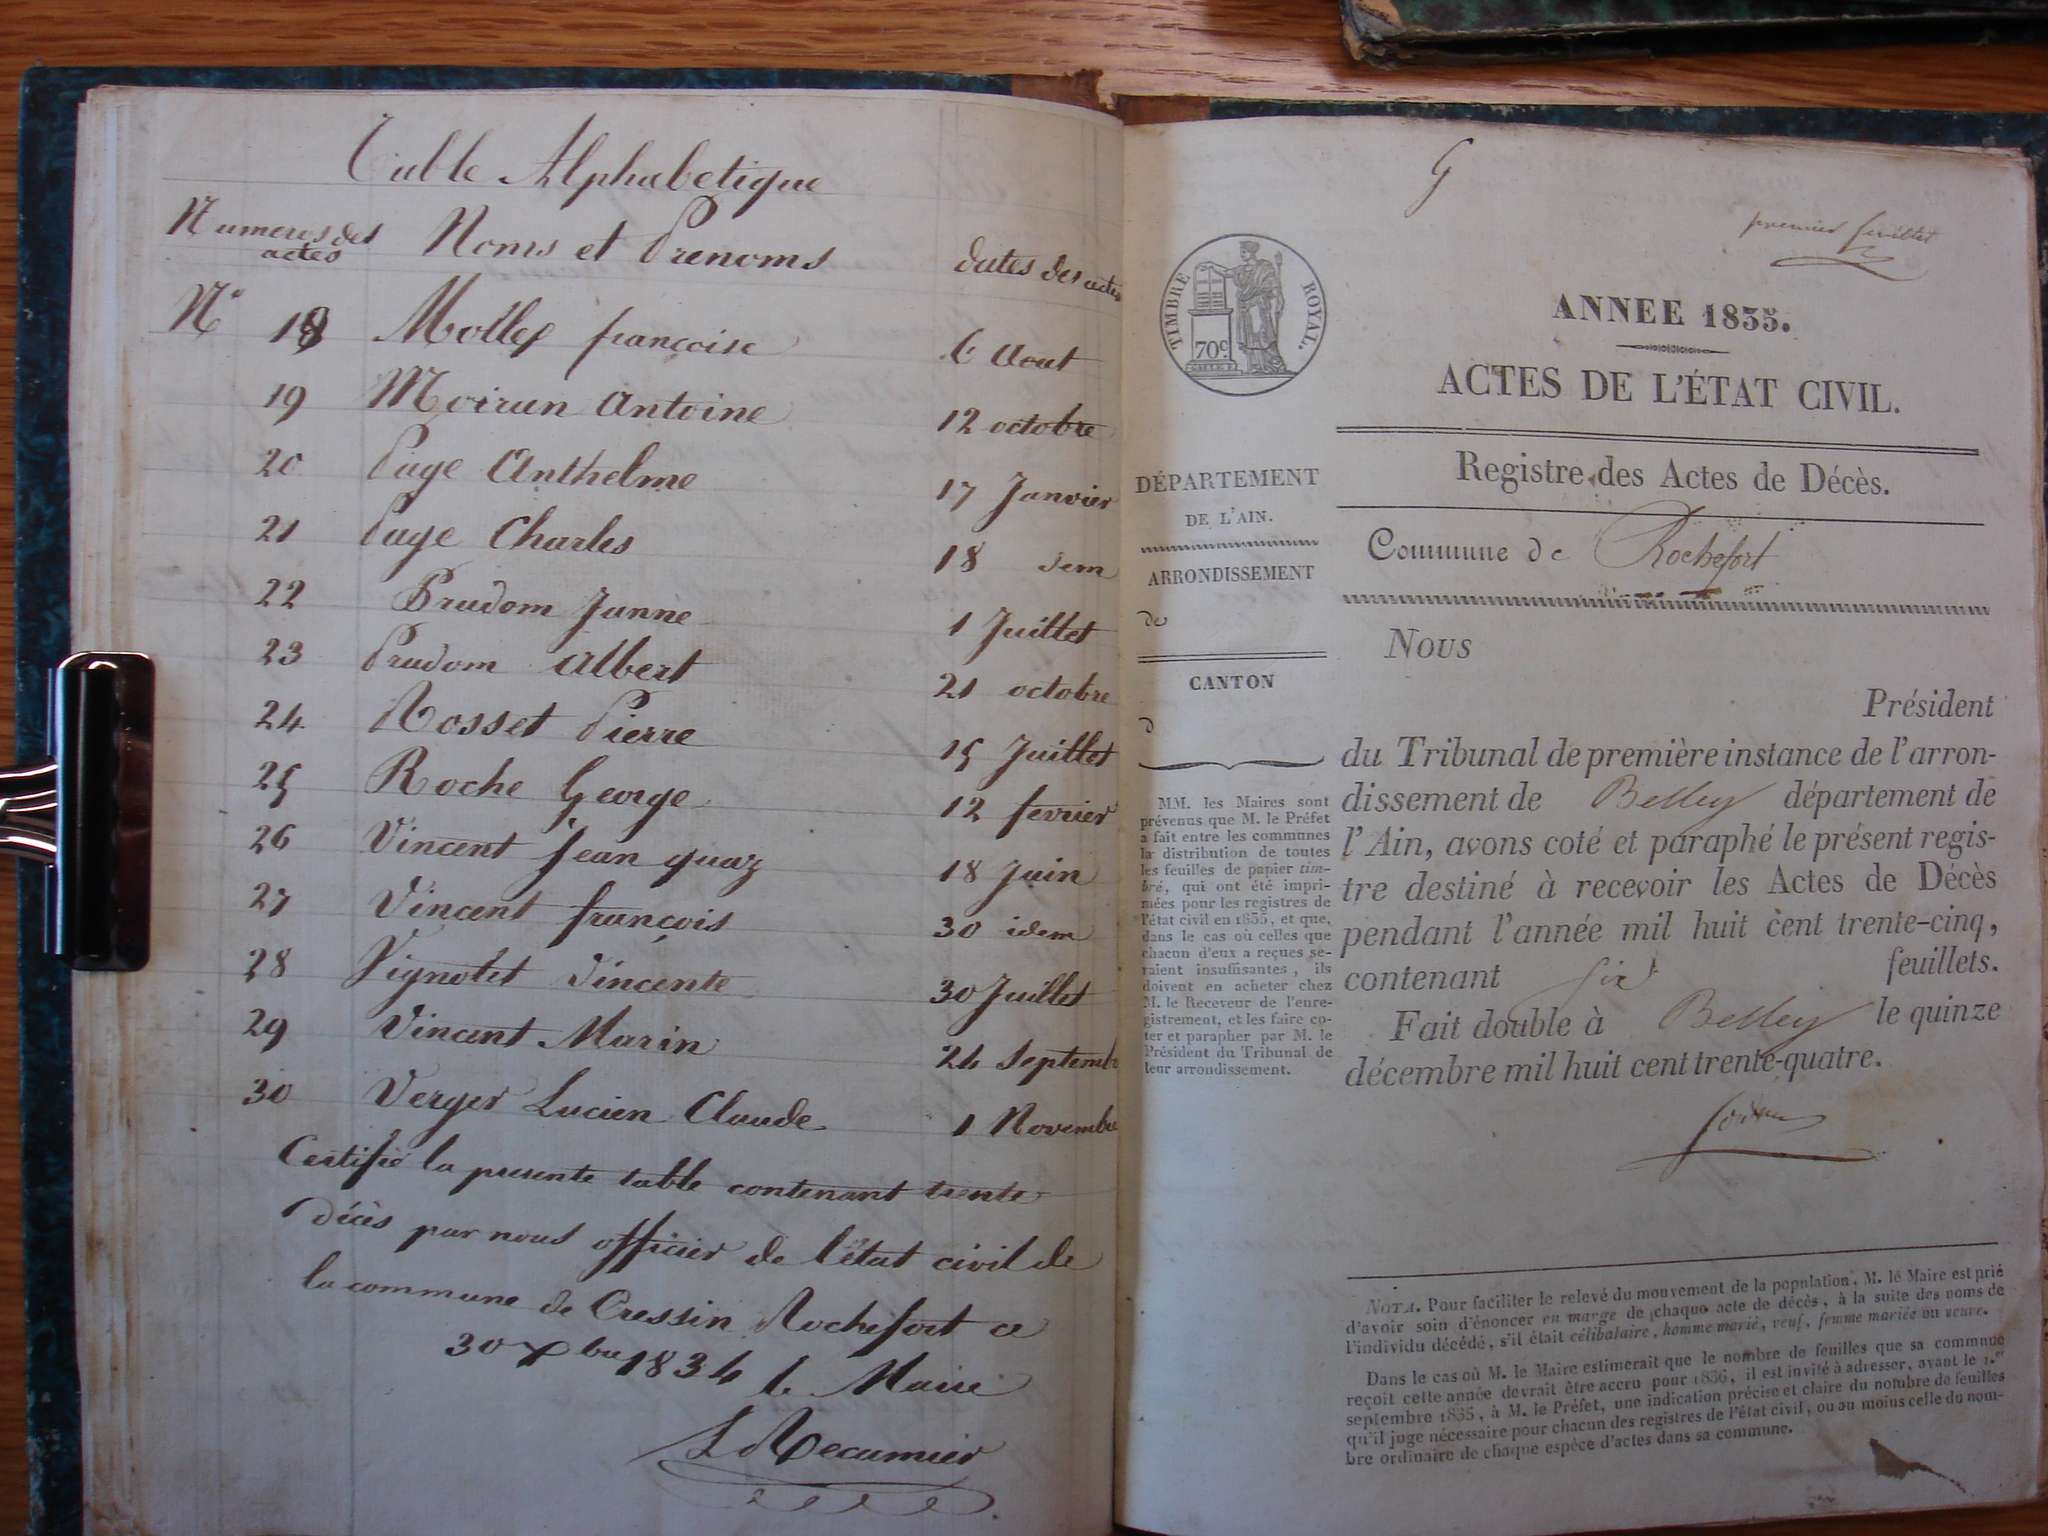 Table Alphabetique
Numeros des actes Noms et Prenoms dates des actes
N° 18 Mollex françoise 6 Aout
19 Moiran Antoine 12 octobre
20 Page Anthelme 17 Janvier
21 Page Charles 18 dem
22 Prudom Janne 1 Juillet
23 Prudom Albert 21 octobre
24 Rosset Pierre 15 Juillet
25 Roche George 12 fevrier
26 Vincent Jean quaz 18 Juin
27 Vincent françois 30 idem
28 Vignolet Vincente 30 Juillet
29 Vincent Marin 24 Septembre
30 Verger Lucien Claude 1 Novembre
Certifié la presente table contenant trente
Décès par nous officier de l'état civil de
la commune de Cressin Rochefort ce
30 Xbre 1834 le Maire
L Recamier
G
premier feuillet
TIMBRE ROYAL.
70c
ANNEE 1835.
ACTES DE L'ÉTAT CIVIL.
Registre des Actes de Décès.
Commune de Rochefort
DÉPARTEMENT
DE L'AIN.
ARRONDISSEMENT
de
CANTON
d
MM. les Maires sont
prévenus que M. le Préfet
a fait entre les communes
la distribution de toutes
les feuilles de papier tim-
bré, qui ont été impri-
mées pour les registres de
l'état civil en 1835, et que,
dans le cas où celles que
chacun d'eux a reçues se-
raient insuffisantes, ils
doivent en acheter chez
M. le Receveur de l'enre-
gistrement, et les faire co-
ter et parapher par M. le
Président du Tribunal de
leur arrondissement.
Nous
Président
du Tribunal de première instance de l'arron-
dissement de Belley département de
l'Ain, avons coté et paraphé le présent regis-
tre destiné à recevoir les Actes de Décès
pendant l'année mil huit cent trente-cinq,
contenant six feuillets.
Fait double à Belley le quinze
décembre mil huit cent trente-quatre.
NOTA. Pour faciliter le relevé du mouvement de la population, M. le Maire est prié
d'avoir soin d'énoncer en marge de chaque acte de décès, à la suite des noms de
l'individu décédé, s'il était célibataire, homme marié, veuf, femme mariée ou veuve.
Dans le cas où M. le Maire estimerait que le nombre de feuilles que sa commune
reçoit cette année devrait être accru pour 1836, il est invité à adresser, avant le 1.er
septembre 1835, à M. le Préfet, une indication précise et claire du nombre de feuilles
qu'il juge nécessaire pour chacun des registres de l'état civil, ou au moins celle du nom-
bre ordinaire de chaque espèce d'actes dans sa commune.